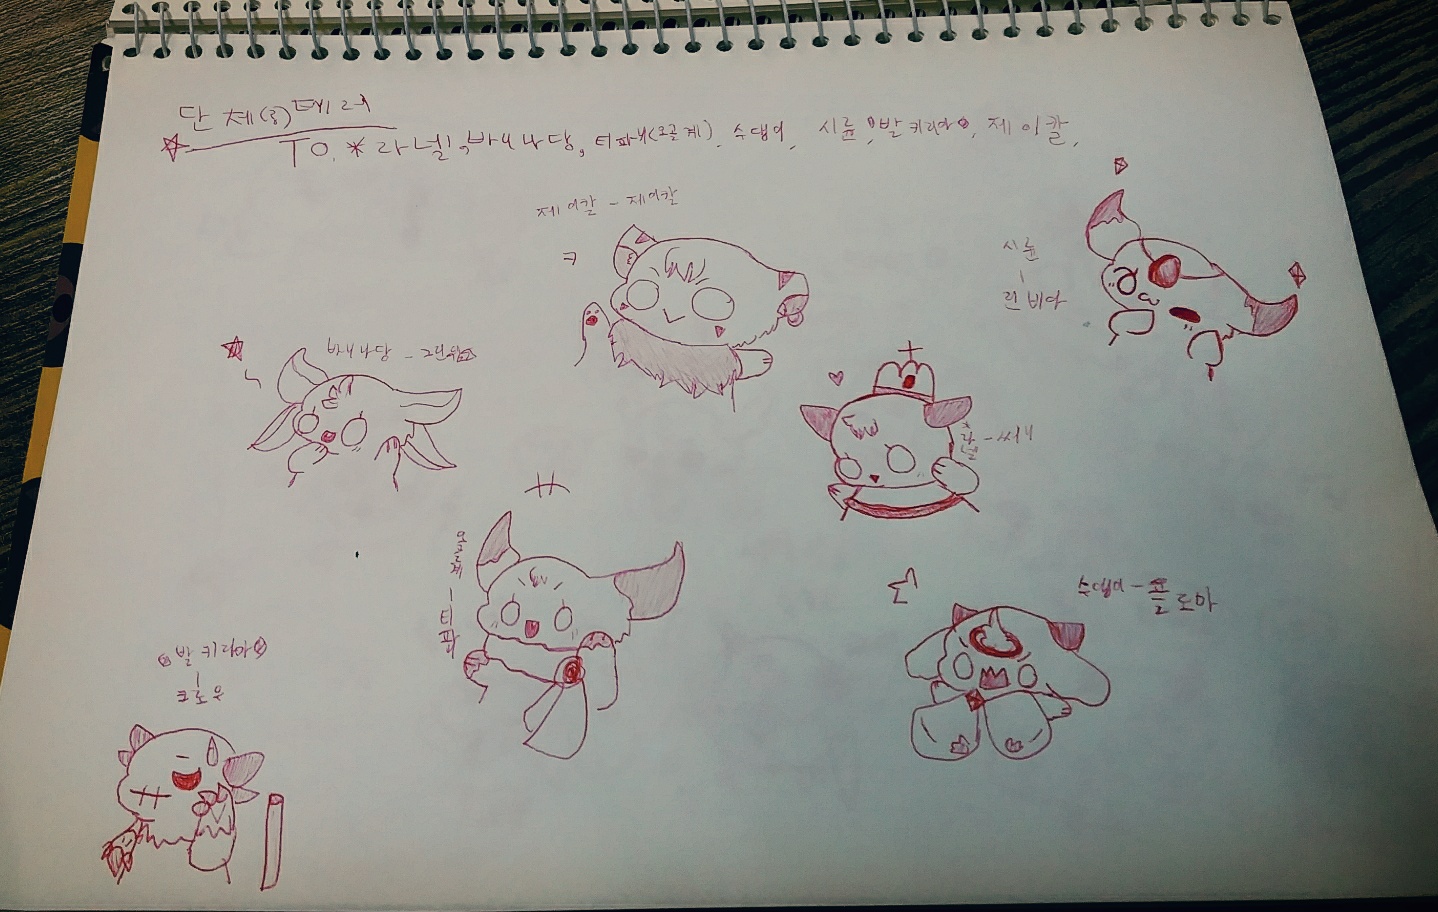 단체(?)테러
TO. *라닐!, 바나나당, 티파(오골계), 수댕이, 시륜, 발키리아, 제이칼,
제이칼 - 제이칼
시륜
-
린비아
바나나당 -
*라닐 -
오골계 - 티파
수댕이 - 플로아
발키리아
-
크로우